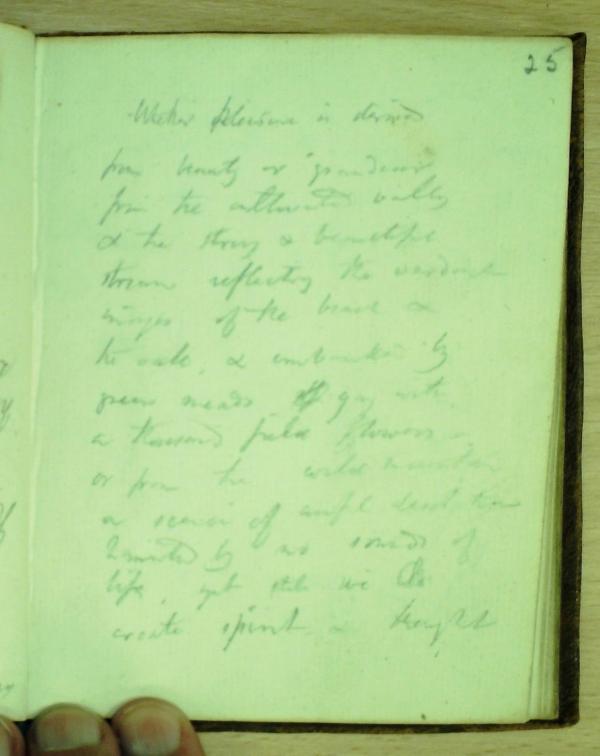 25
Wether pleasure is derived
from beauty or grandeur
from the cultivated valley
& the strong & beautiful
stream reflecting the verdant
images of the &
the oak, & embanked by
green meads gay with
a thousand field flowers
or from the wild mountain
a scene of awful desolation
by no sounds of
life, yet still we
create spirit & thought